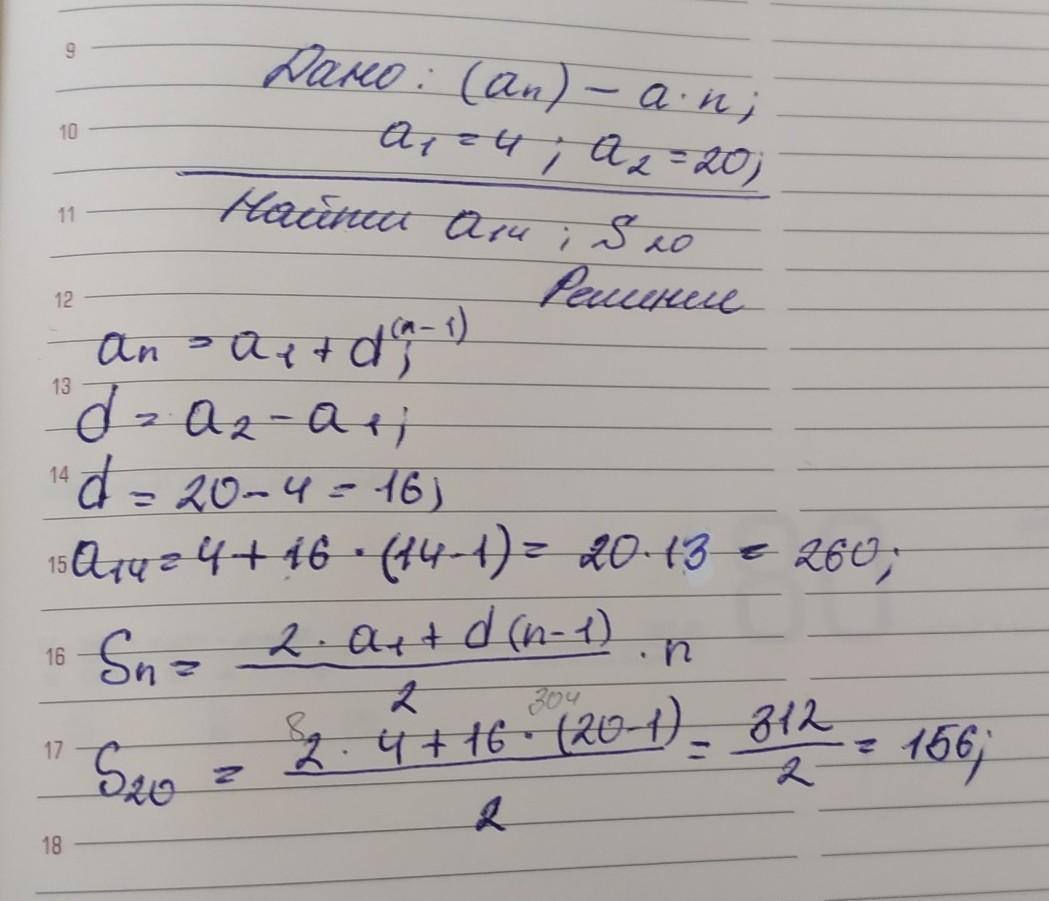 9
Дано: (aₙ) – a·n;
10
a₁ = 4; a₂ = 20;
11
Найти a₁₄; S₂₀
12
Решение
aₙ = a₁ + d⁽ⁿ⁻¹⁾;
13
d = a₂ – a₁;
14
d = 20 – 4 = 16;
15
a₁₄ = 4 + 16 · (14-1) = 20·13 = 260;
16
Sₙ = (2 · a₁ + d(n-1)) / 2 · n
8 304
17
S₂₀ = (2 · 4 + 16 · (20-1)) / 2 = 312 / 2 = 156;
18